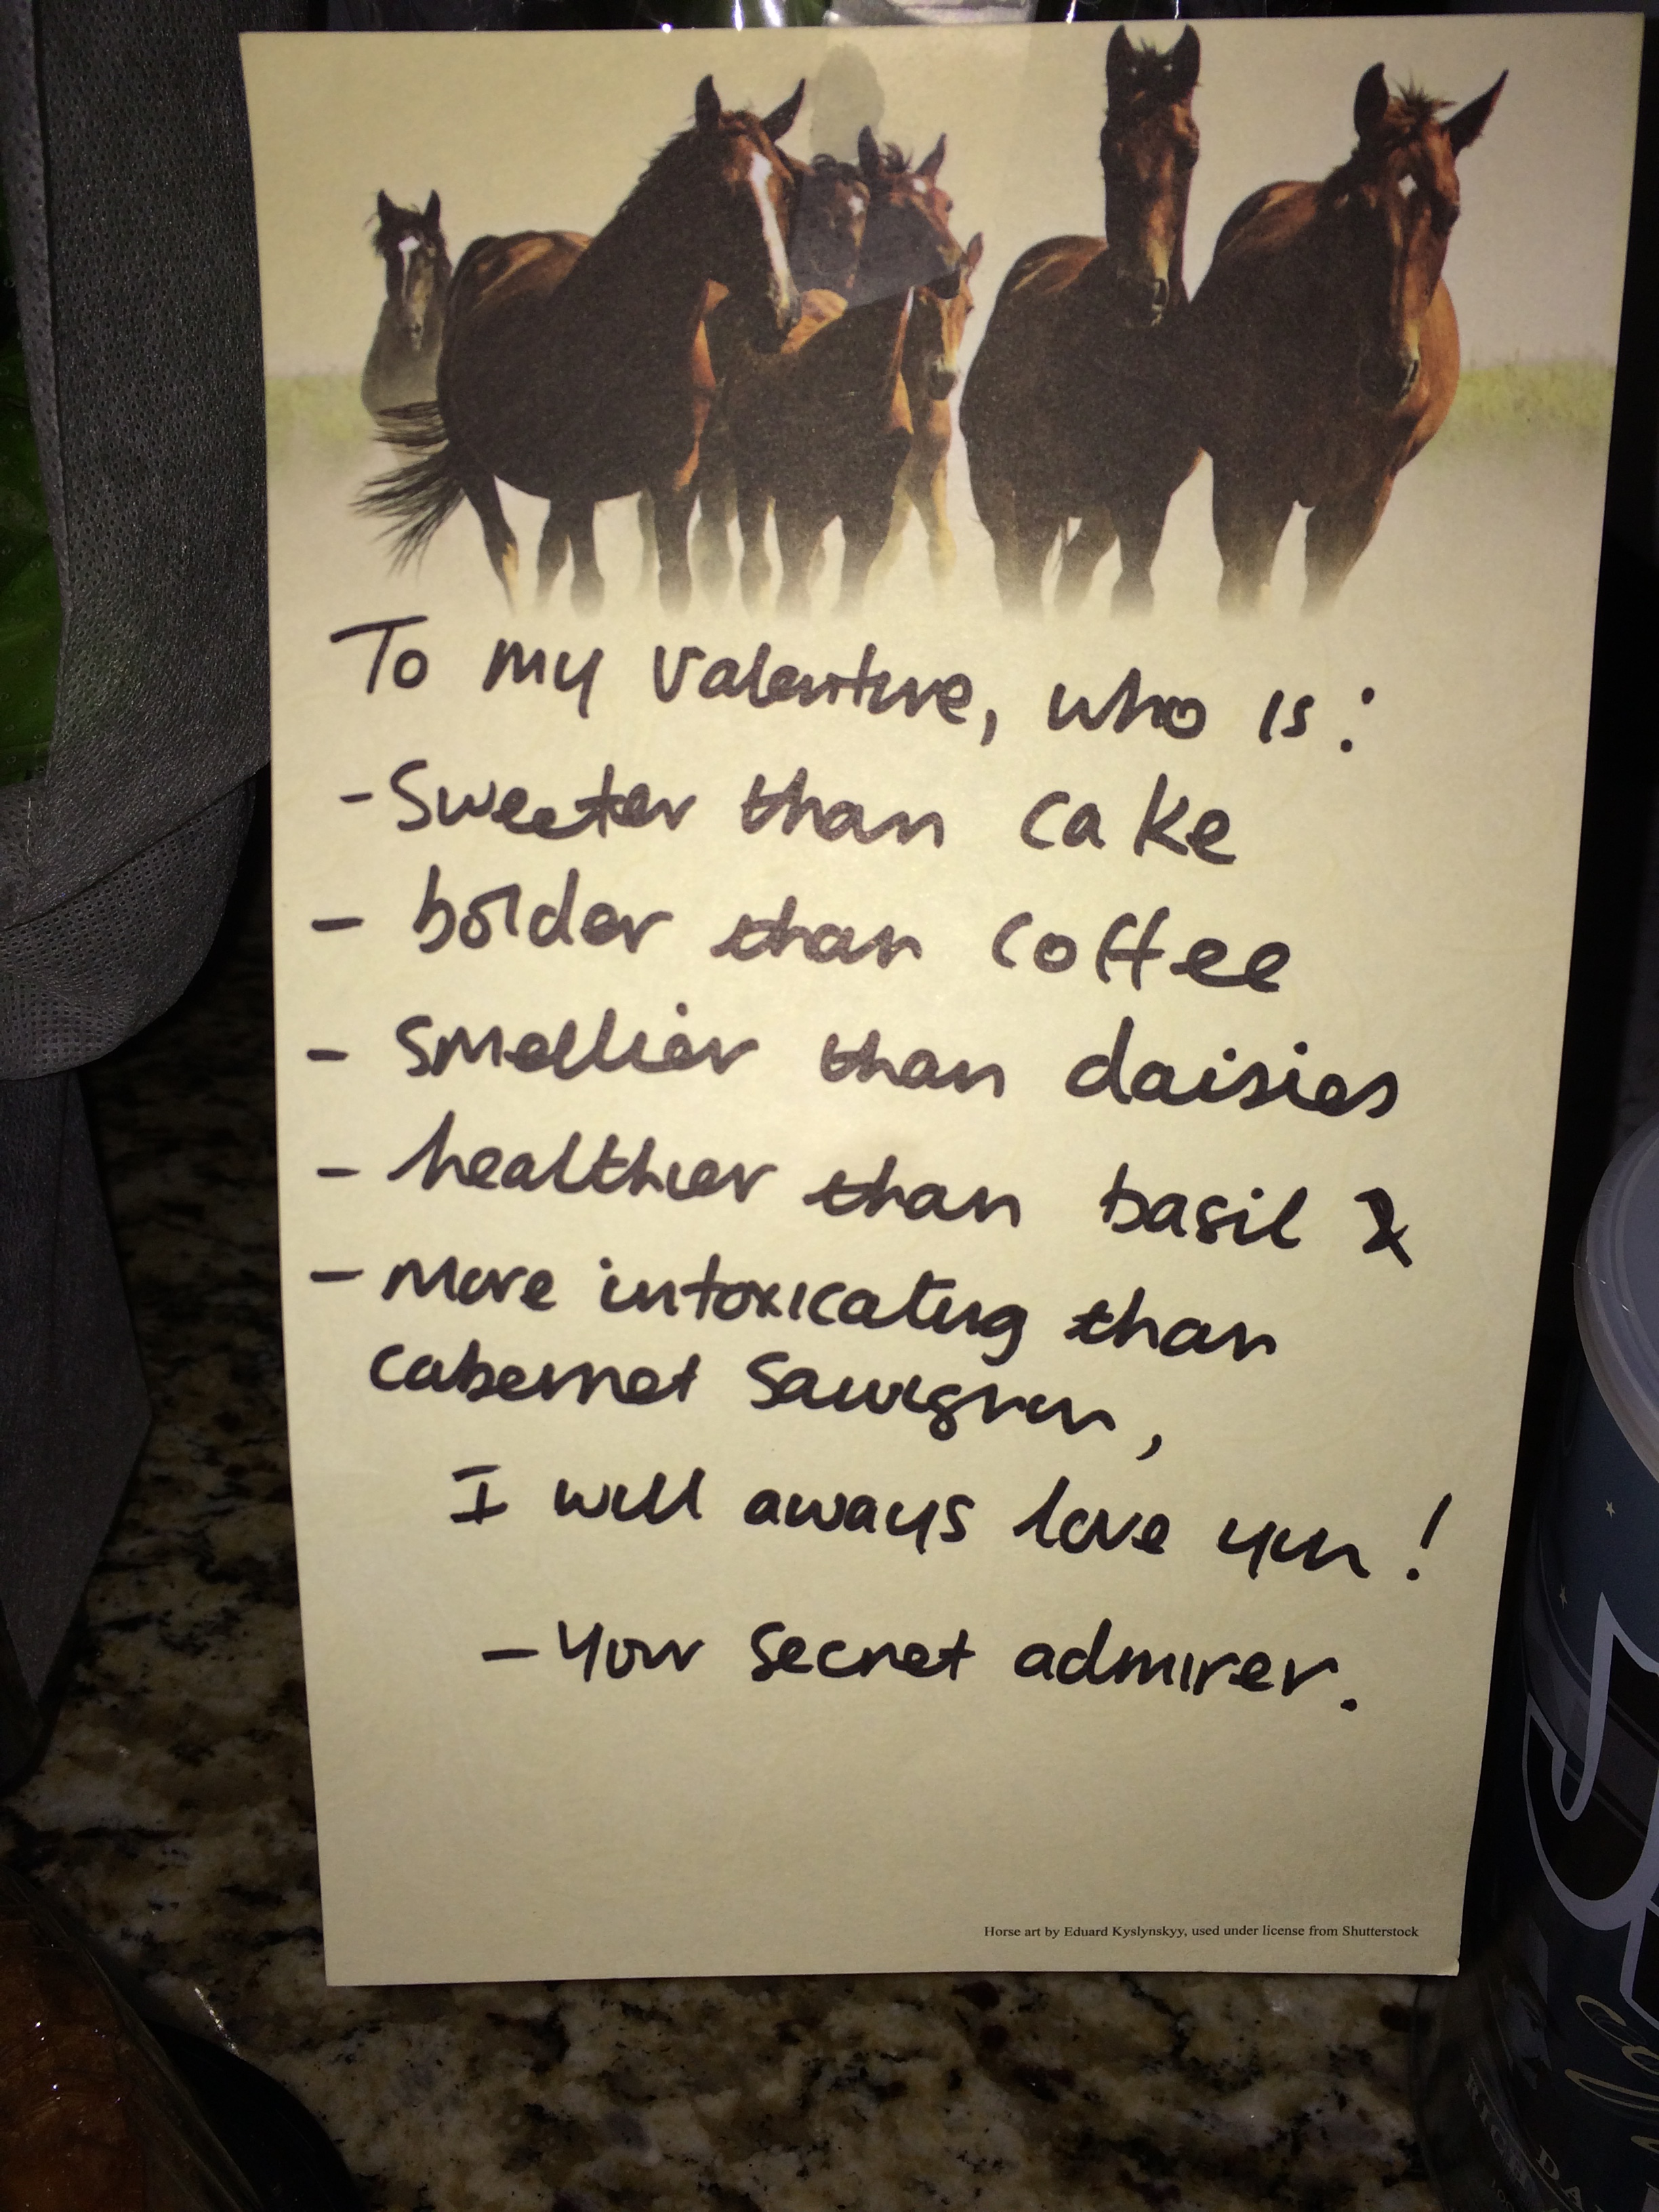 To my valentine, who is:
- Sweeter than cake
- bolder than coffee
- smellier than daisies
- healthier than basil &
- more intoxicating than
cabernet Sauvignon,
I will aways love you!
- Your secret admirer.
Horse art by Eduard Kyslynskyy, used under license from Shutterstock